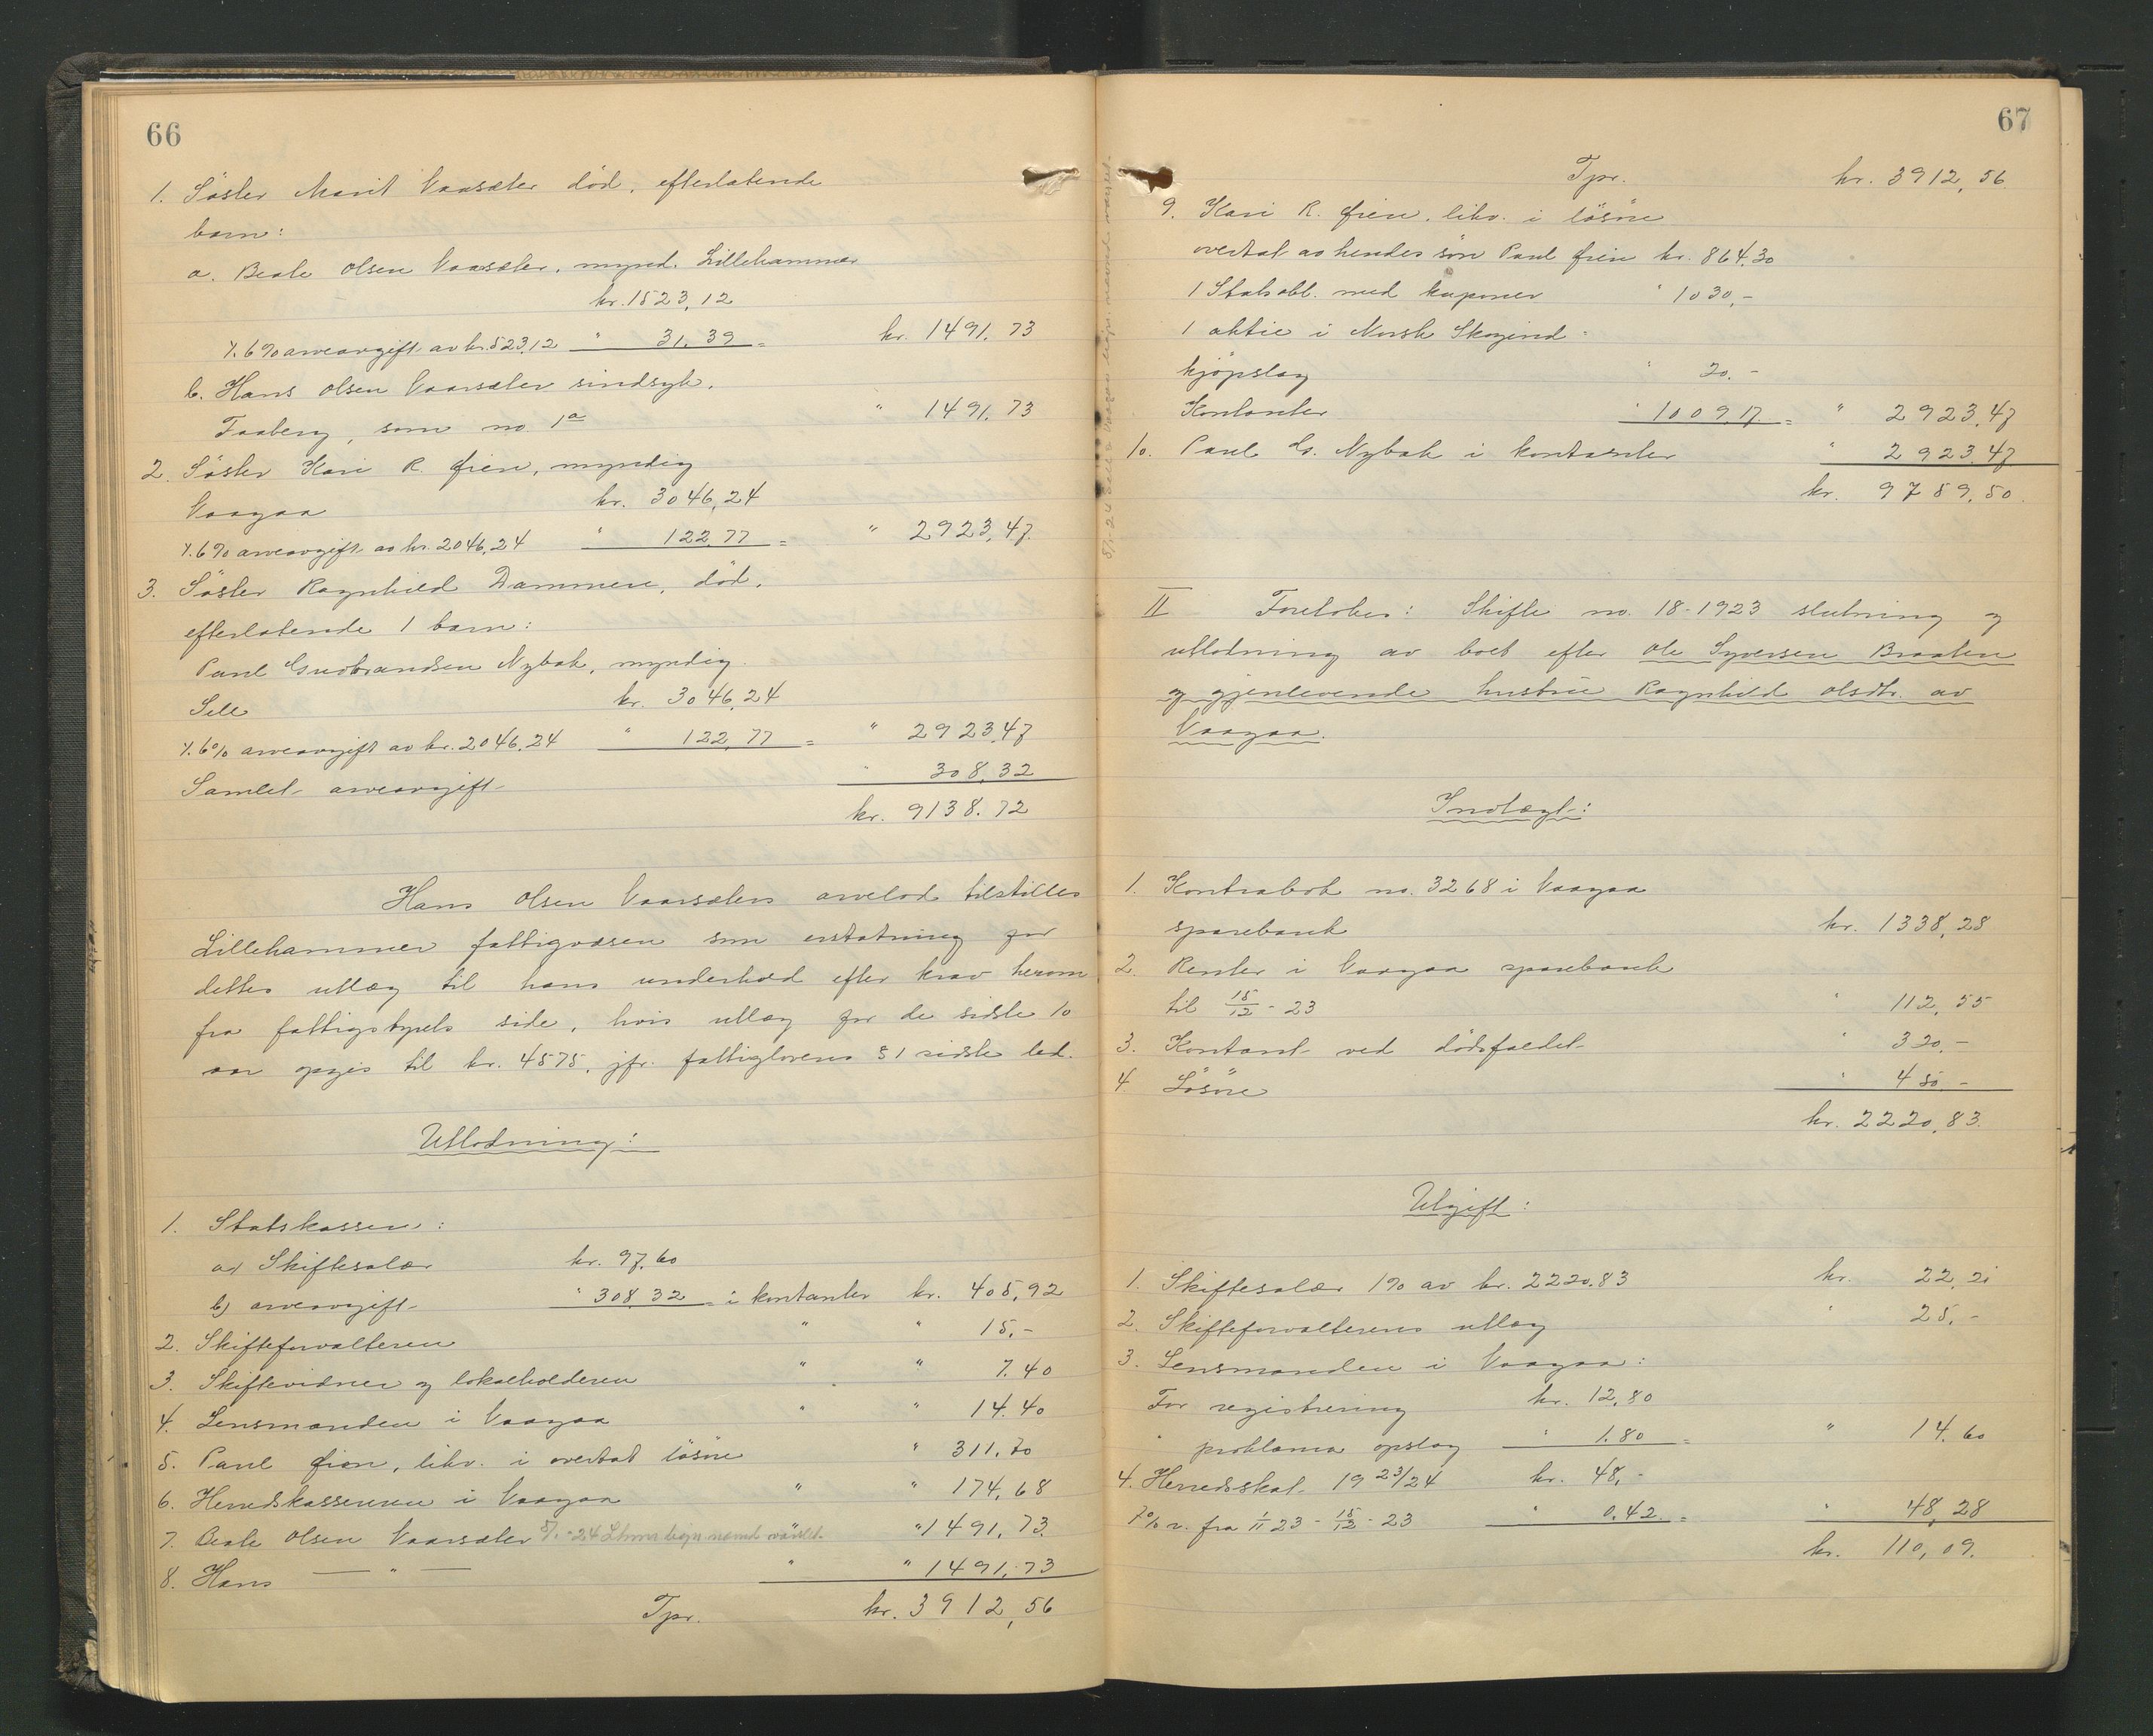 66
1. Söster Marit Vaarsæter död, efterlatende
barn:
a. Beate Olsen Vaarsæter, mynd. Lillehammer
kr. 1523,12
÷ 6% arveavgift av kr. 523,12 " 31,39 = kr. 1491,73
b. Hans Olsen Vaarsæter sindsyk,
Faaberg, som no. 1a " 1491,73
2. Söster Kari R. Øien, myndig
Vaagaa kr. 3046,24
÷ 6% arveavgift av kr. 2046,24 " 122,77 = " 2923,47
3. Söster Ragnhild Dammen, död,
efterlatende 1 barn:
Paul Gudbrandsen Nybak, myndig
Sell kr. 3046,24
÷ 6% arveavgift av kr. 2046,24 " 122,77 = " 2923,47
Samlet arveavgift " 308,32
kr. 9138.72
Hans Olsen Vaarsæters arvelod tilstilles
Lillehammer fattigvæsen som erstatning for
dettes utlæg til hans underhold efter krav herom
fra fattigstyrets side, hvis utlæg for de sidste 10
aar opgis til kr. 4575, jfr. fattiglovens § 1 sidste led.
Utlodning:
1. Statskassen:
a) Skiftesalær kr. 97,60
b) arveavgift " 308,32 = i kontanter kr. 405,92
2. Skifteforvalteren " " 15,-
3. Skiftevidner og lokaleholderen " " 7.40
4. Lensmanden i Vaagaa " " 14.40
5. Paul Øien, likv. i overtat lösöre " 311,70
6. Herredskassereren i Vaagaa " " 174,68
7. Beate Olsen Vaarsæter 5/1-24 Lhmr lign.nemd varslet " 1491,73
8. Hans — " — " " 1491,73
Tpr. kr. 3912,56
67
Tpr. kr. 3912,56
9. Kari R. Øien, likv. i lösöre
overtat av hendes sön Paul Øien kr. 864.30
1 Statsobl. med kuponer " 1030,-
1 aktie i Norsk Skogeiend=
kjöpslag " 20.-
Kontanter " 1009,17 = " 2923,47
10. Paul G. Nybak i kontanter " 2923,47
kr. 9759,50
II Foretokes: Skifte no. 18-1923 slutning og
utlodning av boet efter Ole Syversen Braaten
og gjenlevende hustru Ragnhild Olsdtr. av
Vaagaa.
Indtægt:
1. Kontrabok no. 3268 i Vaagaa
sparebank kr. 1338,28
2. Renter i Vaagaa sparebank
til 15/12-23 " 112,55
3. Kontant ved dödsfaldet " 320,-
4 Lösöre " 450.-
kr. 2220,83.
Utgift:
1. Skiftesalær 1% av kr. 2220.83 kr. 22,21
2. Skifteforvalterens utlæg " 25,-
3. Lensmanden i Vaagaa:
For registrering kr. 12,80
" proklama opslag " 1.80 = " 14.60
4. Herredsskat 1923/24 kr. 48,-
7% r. fra 1/11 23 - 15/12 - 23 " 0,42 = " 48,28
kr. 110,09.